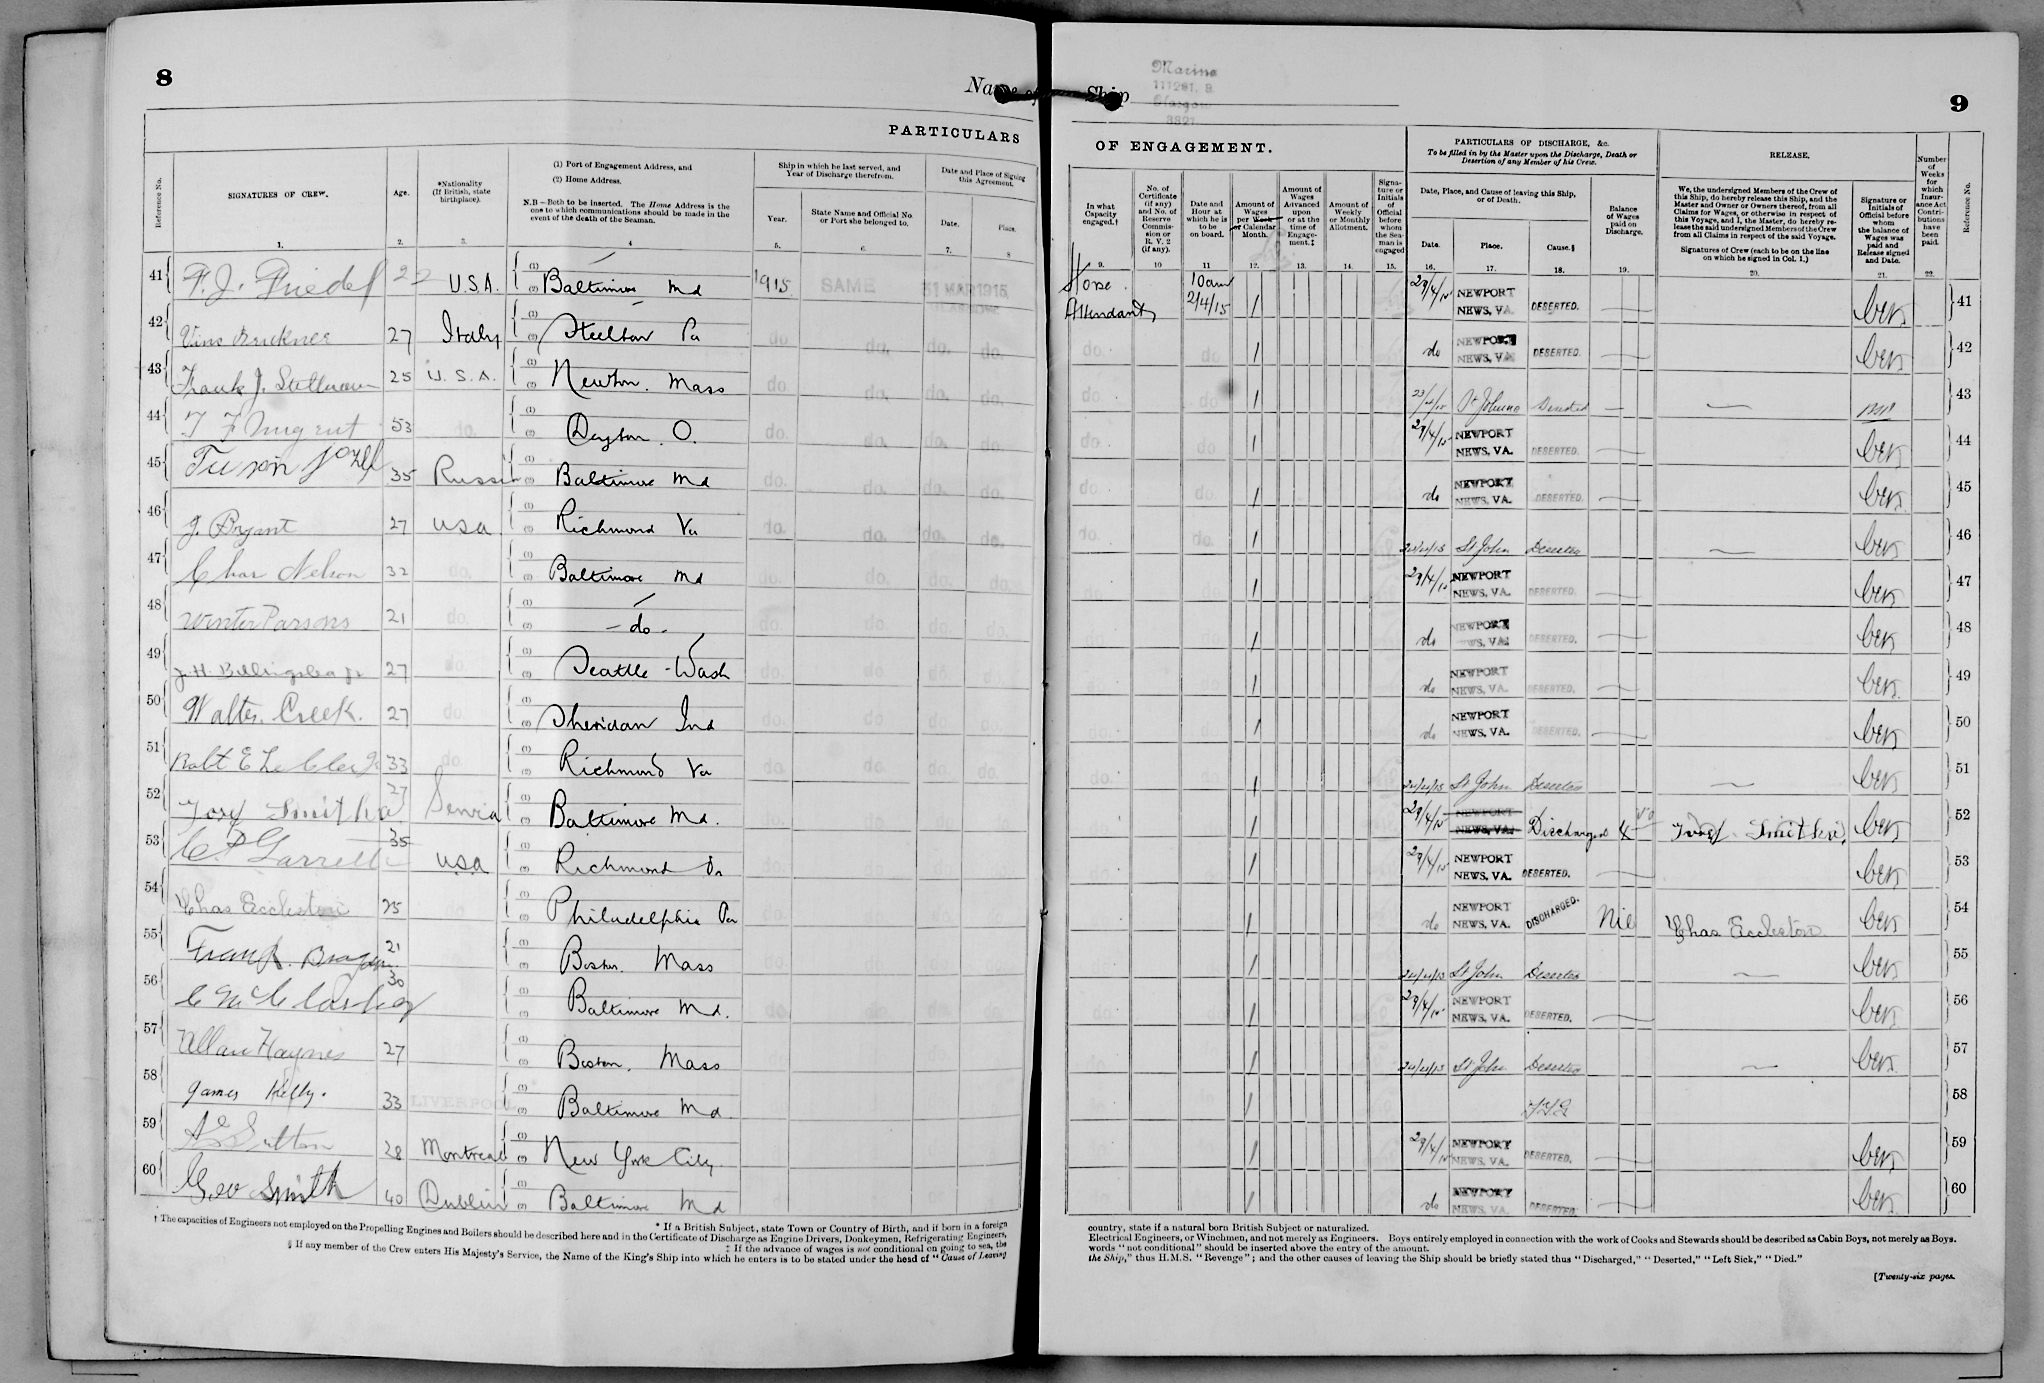 8
Name of Ship
Marina
111261. B
Glasgow
9
PARTICULARS OF ENGAGEMENT.
PARTICULARS OF DISCHARGE, &c.
To be filled in by the Master upon the Discharge, Death or Desertion of any Member of his Crew.
RELEASE.
Reference No.
SIGNATURES OF CREW.
Age.
*Nationality (If British, state birthplace).
(1) Port of Engagement Address, and
(2) Home Address.
N.B.—Both to be inserted. The Home Address is the one to which communications should be made in the event of the death of the Seaman.
Ship in which he last served, and Year of Discharge therefrom.
Year.
State Name and Official No. or Port she belonged to.
Date and Place of Signing this Agreement.
Date.
Place.
In what Capacity engaged.†
No. of Certificate (if any) and No. of Reserve Commission or R. V. 2 (if any).
Date and Hour at which he is to be on board.
Amount of Wages per Week or Calendar Month.
Amount of Wages Advanced upon or at the time of Engagement.‡
Amount of Weekly or Monthly Allotment.
Signature or Initials of Official before whom the Seaman is engaged
Date, Place, and Cause of leaving this Ship, or of Death.
Date.
Place.
Cause.§
Balance of Wages paid on Discharge.
We, the undersigned Members of the Crew of this Ship, do hereby release this Ship, and the Master and Owner or Owners thereof, from all Claims for Wages, or otherwise in respect of this Voyage, and I, the Master, do hereby release the said undersigned Members of the Crew from all Claims in respect of the said Voyage.
Signatures of Crew (each to be on the line on which he signed in Col. 1.)
Signature or Initials of Official before whom the balance of Wages was paid and Release signed and Date.
Number of Weeks for which Insurance Act Contributions have been paid.
Reference No.
1. 2. 3. 4 5. 6. 7. 8 9. 10 11 12. 13. 14. 15. 16. 17. 18. 19. 20. 21. 22.
41 F. J. Friedel 22 U.S.A. (1) (2) Baltimore Md 1915 SAME 31 MAR 1915 GLASGOW Horse Attendant 10am 2/4/15 1 29/4/15 NEWPORT NEWS, VA. DESERTED. 41
42 Vins Bruckner 27 Italy (1) (2) Steelton Pa do. do. do. do. do. do. 1 do NEWPORT NEWS, VA DESERTED. 42
43 Frank J. Sullivan 25 U.S.A. (1) (2) Newton. Mass do. do. do. do. do. do. 1 23/4/15 St Johns Deserted 43
44 T F Nugent 53 do. (1) (2) Dayton. O. do. do. do. do. do. do. 1 29/4/15 NEWPORT NEWS, VA. DESERTED. 44
45 35 Russia (1) (2) Baltimore Md do. do. do. do. do. do. 1 do NEWPORT NEWS, VA. DESERTED. 45
46 J. Bryant 27 USA (1) (2) Richmond Va do. do. do. do. do. do. 1 24/4/15 St John Deserted 46
47 Char Nelson 32 do. (1) (2) Baltimore Md do. do. do. do. do. do. 1 29/4/15 NEWPORT NEWS, VA. DESERTED. 47
48 Winter Parsons 21 do. (1) (2) - do - do. do. do. do. do. do. 1 do NEWPORT NEWS, VA. DESERTED. 48
49 J. H. Billingslea Jr 27 do. (1) (2) Seattle - Wash do. do. do. do. do. do. 1 do NEWPORT NEWS, VA. DESERTED. 49
50 Walter. Creek. 27 do. (1) (2) Sheridan Ind do. do. do. do. do. do. 1 do NEWPORT NEWS, VA. DESERTED. 50
51 Robt E 33 do. (1) (2) Richmond Va do. do. do. do. do. do. 1 24/4/15 St John Deserted 51
52 27 Servia (1) (2) Baltimore Md. do. do. do. do. do. do. 1 29/4/15 NEWPORT NEWS, VA. Discharged 4 52
53 C. P Garrett 35 USA (1) (2) Richmond Va do. do. do. do. do. do. 1 29/4/15 NEWPORT NEWS, VA. DESERTED. 53
54 Chas Eccleston 25 (1) (2) Philadelphia Pa do. do. do. do. do. do. 1 do NEWPORT NEWS, VA. DISCHARGED. Nil Chas Eccleston 54
55 Frank 21 (1) (2) Boston. Mass do. do. do. do. do. do. 1 24/4/15 St John Deserted 55
56 C McCloskey 30 (1) (2) Baltimore Md. do. do. do. do. do. do. 1 29/4/15 NEWPORT NEWS, VA. DESERTED. 56
57 Allan Haynes 27 (1) (2) Boston. Mass do. do. do. do. do. do. 1 24/4/15 St John Deserted 57
58 James Kelly. 33 LIVERPOOL (1) (2) Baltimore Md. do. do. do. do. do. do. 1 58
59 Sutton 28 Montreal (1) (2) New York City. do. do. do. do. do. do. 1 29/4/15 NEWPORT NEWS, VA. DESERTED. 59
60 Geo Smith 40 Dublin (1) (2) Baltimore Md do. do. do. do. do. do. 1 do NEWPORT NEWS, VA. DESERTED. 60
* If a British Subject, state Town or Country of Birth, and if born in a foreign country, state if a natural born British Subject or naturalized.
† The capacities of Engineers not employed on the Propelling Engines and Boilers should be described here and in the Certificate of Discharge as Engine Drivers, Donkeymen, Refrigerating Engineers, Electrical Engineers, or Winchmen, and not merely as Engineers. Boys entirely employed in connection with the work of Cooks and Stewards should be described as Cabin Boys, not merely as Boys.
‡ If the advance of wages is not conditional on going to sea, the words "not conditional" should be inserted above the entry of the amount.
§ If any member of the Crew enters His Majesty's Service, the Name of the King's Ship into which he enters is to be stated under the head of "Cause of Leaving the Ship," thus H.M.S. "Revenge"; and the other causes of leaving the Ship should be briefly stated thus "Discharged," "Deserted," "Left Sick," "Died."
[Twenty-six pages.